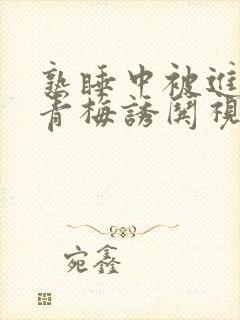 熟睡中被進
青梅誘関視
宛鑫